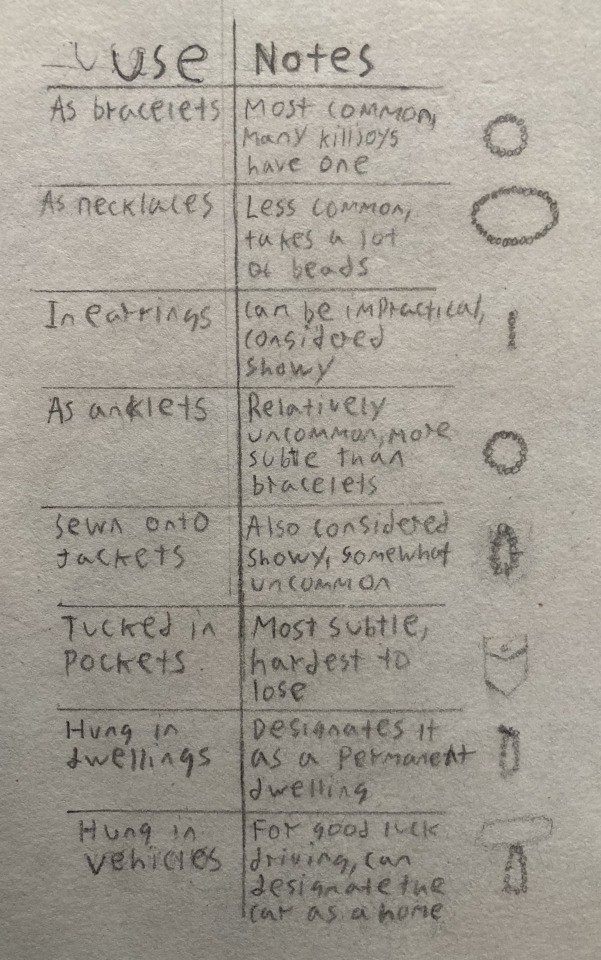 use Notes
As bracelets
Most common,
Many killjoys
have one
As necklaces
Less common,
takes a lot
of beads
In earrings
can be impractical,
considered
showy
As anklets
Relatively
uncommon, more
subtle than
bracelets
sewn onto
jackets
Also considered
showy, somewhat
uncommon
Tucked in
pockets
Most subtle,
hardest to
lose
Hung in
dwellings
Designates it
as a permanent
dwelling
Hung in
vehicles
For good luck
driving, can
designate the
car as a home